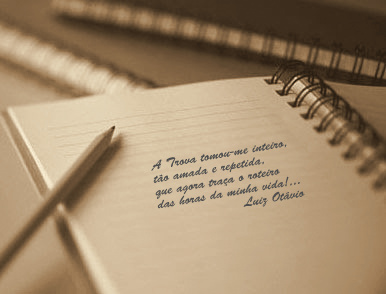 A Trova tomou-me inteiro,
tão amada e repetida,
que agora traça o roteiro
das horas da minha vida!...
Luiz Otávio